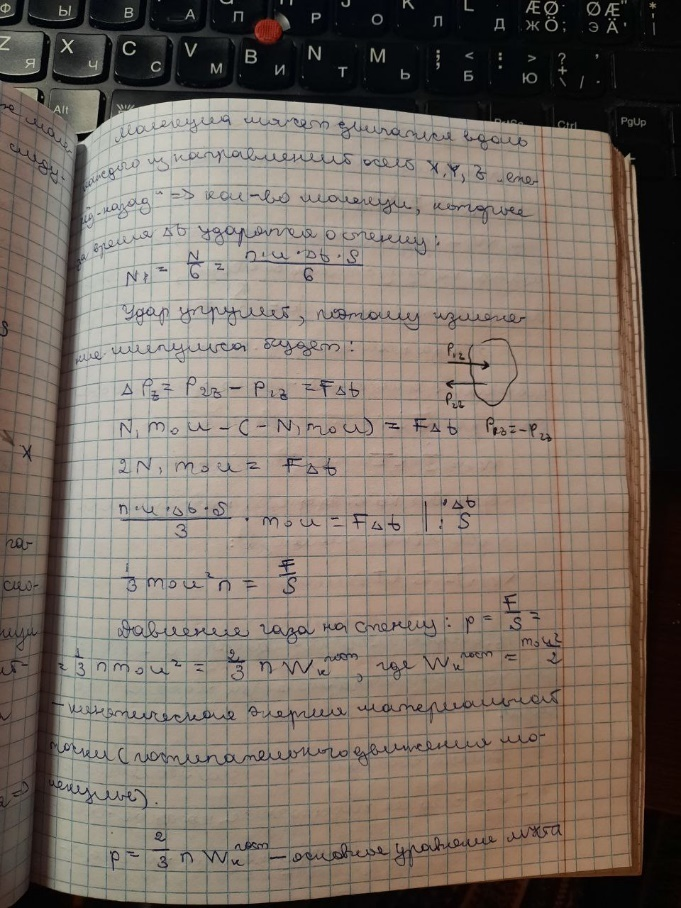 Z Я
X Ч
C С
V М
B И
N Т
M Ь
; Б
: > Ю
? /
Alt
Ctrl
PgUp
A
П
Р
О
К Л
L Д
ÆØ Ж Ö
ØÆ Э Ä
Молекула может двигаться вдоль
каждого из направлений осей X, Y, Z „впе-
рёд-назад" => кол-во молекул, которые
за время Δt ударятся о стенку:
N₁ = N/6 = n·u·Δt·S/6
Удар упругий, поэтому измене-
ние импульса будет:
P₁z
P₂z
ΔPz = P₂z − P₁z = FΔt
N₁m₀u − (−N₁m₀u) = FΔt P₁z = −P₂z
2N₁m₀u = FΔt
n·u·Δt·S/3 · m₀u = FΔt | :Δt :S
1/3 m₀u²n = F/S
Давление газа на стенку: p = F/S =
= 1/3 nm₀u² = 2/3 n Wкпост, где Wкпост = m₀u²/2
– кинетическая энергия материальной
точки (поступательного движения мо-
лекулы).
p = 2/3 n Wкпост – основное уравнение мкта